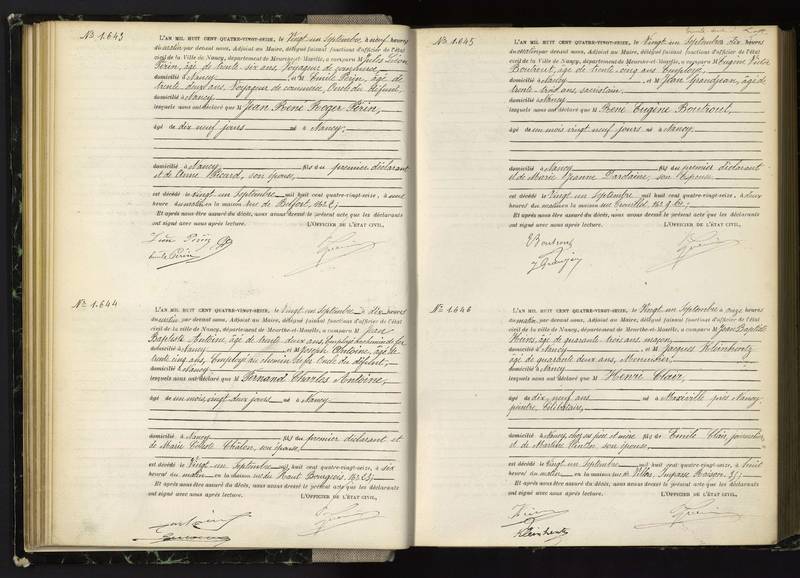 N° 1.643
L'AN MIL HUIT CENT QUATRE-VINGT-SEIZE, le Vingt un Septembre à neuf heures
du matin par devant nous, Adjoint au Maire, délégué faisant fonctions d'officier de l'état
civil de la Ville de Nancy, département de Meurthe-et-Moselle, a comparu M Jules Léon
Périn, âgé de trente six ans, Voyageur de commerce
domicilié à Nancy et M Emile Périn, âgé de
trente deux ans, Voyageur de commerce, Oncle du défunt,
domicilié à Nancy
lesquels nous ont déclaré que M Jean René Roger Périn,
âgé de dix neuf jours né à Nancy,
domicilié à Nancy fils du premier déclarant
et de Anne Picard, son épouse,
est décédé le vingt un Septembre mil huit cent quatre-vingt-seize, à une
heure du matin en la maison rue de Belfort,
Et après nous être assuré du décès, nous avons dressé le présent acte que les déclarants
ont signé avec nous après lecture. L'OFFICIER DE L'ÉTAT CIVIL,
Léon Périn
Emile Périn
N° 1.644
L'AN MIL HUIT CENT QUATRE-VINGT-SEIZE, le Vingt un Septembre à dix heures
du matin par devant nous, Adjoint au Maire, délégué faisant fonctions d'officier de l'état
civil de la ville de Nancy, département de Meurthe-et-Moselle, a comparu M Jean
Baptiste Antoine, âgé de trente deux ans, Employé au chemin de fer
domicilié à Nancy et M Joseph Antoine, âgé de
trente cinq ans, Employé au chemin de fer, Oncle du défunt,
domicilié à Nancy
lesquels nous ont déclaré que M Fernand Charles Antoine,
âgé de un mois vingt deux jours né à Nancy
domicilié à Nancy fils du premier déclarant et
de Marie Céleste Châlon, son épouse,
est décédé le Vingt un Septembre mil huit cent quatre-vingt-seize, à six
heures du matin en la maison rue du Haut Bourgeois,
Et après nous être assuré du décès, nous avons dressé le présent acte que les déclarants
ont signé avec nous après lecture. L'OFFICIER DE L'ÉTAT CIVIL,
N° 1645
L'AN MIL HUIT CENT QUATRE-VINGT-SEIZE, le Vingt un Septembre dix heures
du matin par devant nous, Adjoint au Maire, délégué faisant fonctions d'officier de l'état
civil de la Ville de Nancy, département de Meurthe-et-Moselle, a comparu M Eugène Victor
Boutrout, âgé de trente cinq ans Employé,
domicilié à Nancy et M Jean Grandjean, âgé de
trente trois ans sacristain,
domicilié à Nancy
lesquels nous ont déclaré que M René Eugène Boutrout,
âgé de un mois vingt neuf jours né à Nancy
domicilié à Nancy fils du premier déclarant
et de Marie Jeanne Dardaine, son épouse
est décédé le Vingt un Septembre mil huit cent quatre-vingt-seize, à deux
heures du matin en la maison rue
Et après nous être assuré du décès, nous avons dressé le présent acte que les déclarants
ont signé avec nous après lecture. L'OFFICIER DE L'ÉTAT CIVIL,
E Boutrout
J Grandjean
N° 1646
L'AN MIL HUIT CENT QUATRE-VINGT-SEIZE, le Vingt un Septembre à onze heures
du matin, par devant nous, Adjoint au Maire, délégué faisant fonctions d'officier de l'état
civil de la ville de Nancy, département de Meurthe-et-Moselle, a comparu M Jean Baptiste
âgé de quarante trois ans maçon,
domicilié à Nancy et M Jacques Kleinhentz
âgé de quarante deux ans, Menuisier
domicilié à Nancy
lesquels nous ont déclaré que M Henri Clair,
âgé de dix neuf ans né à Maxéville près Nancy,
peintre, Célibataire,
domicilié à Nancy chez ses père et mère fils de Emile Clair, journalier
et de son épouse,
est décédé le Vingt un Septembre mil huit cent quatre-vingt-seize, à huit
heures du matin en la maison
Et après nous être assuré du décès, nous avons dressé le présent acte que les déclarants
ont signé avec nous après lecture. L'OFFICIER DE L'ÉTAT CIVIL,
Kleinhentz